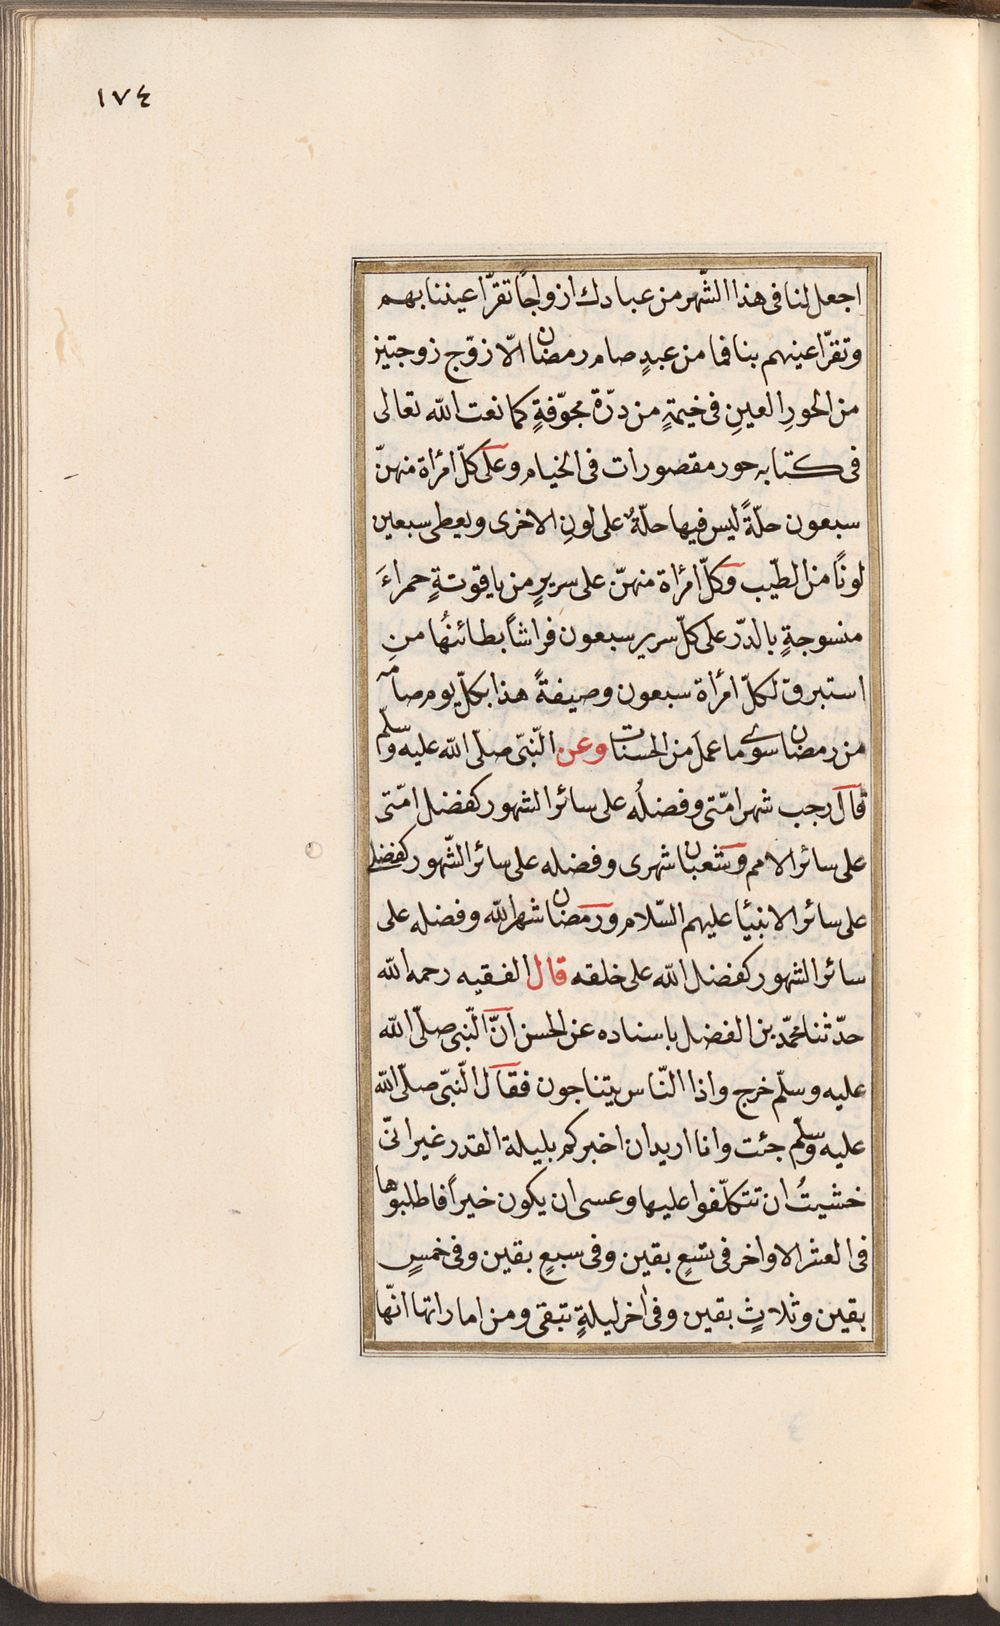 ١٧٤
اجعل لنا فى هذا الشّهر من عبادك ازواجًا تقرّ اعيننا بهم
وتقرّ اعينهم بنا فما من عبدٍ صام رمضان الّا زوّج زوجتين
من الحورِ العينِ فى خيمةٍ من درّة مجوّفةٍ كما نعت اللّه تعالى
فى كتابه حور مقصورات فى الخيام وعلى كلّ امرأة منهنّ
سبعون حلّةً ليس فيها حلّةٌ على لونِ الاخرى ويعطى سبعين
لونًا من الطّيب وكلّ امرأة منهنّ على سريرٍ من ياقوتةٍ حمراءَ
منسوجةٍ بالدّر على كلّ سرير سبعون فراشاً بطائنُها من
استبرق لكلّ امرأة سبعون وصيفةً هذا بكلّ يوم صامه
من رمضان سوى ما عمل من الحسنات وعن النّبّى صلّى اللّه عليه وسلّم
قال رجب شهر امّتى وفضلُه على سائر الشهور كفضل امّتى
على سائر الامم وشعبان شهرى وفضله على سائر الشّهور كفضلى
على سائر الانبئيا عليهم السّلام ورمضان شهر اللّه وفضله على
سائر الشهور كفضل اللّه على خلقه قال الفقيه رحمه اللّه
حدّثنا محمّد بن الفضل باسناده عن الحسن انّ النّبى صلّى اللّه
عليه وسلّم خرج واذا النّاس يتناجون فقال النّبّى صلّى اللّه
عليه وسلّم جئت وانا اريد ان اخبركم بليلة القدر غير انّى
خشيتُ ان تتكلّفوا عليها وعسى ان يكون خيراً فاطلبوها
فى العشر الاواخر فى تسعٍ بقين وفى سبعٍ بقين وفى خمسٍ
بقين وثلاثٍ بقين وفى اخر ليلةٍ تبقى ومن اماراتها انّها